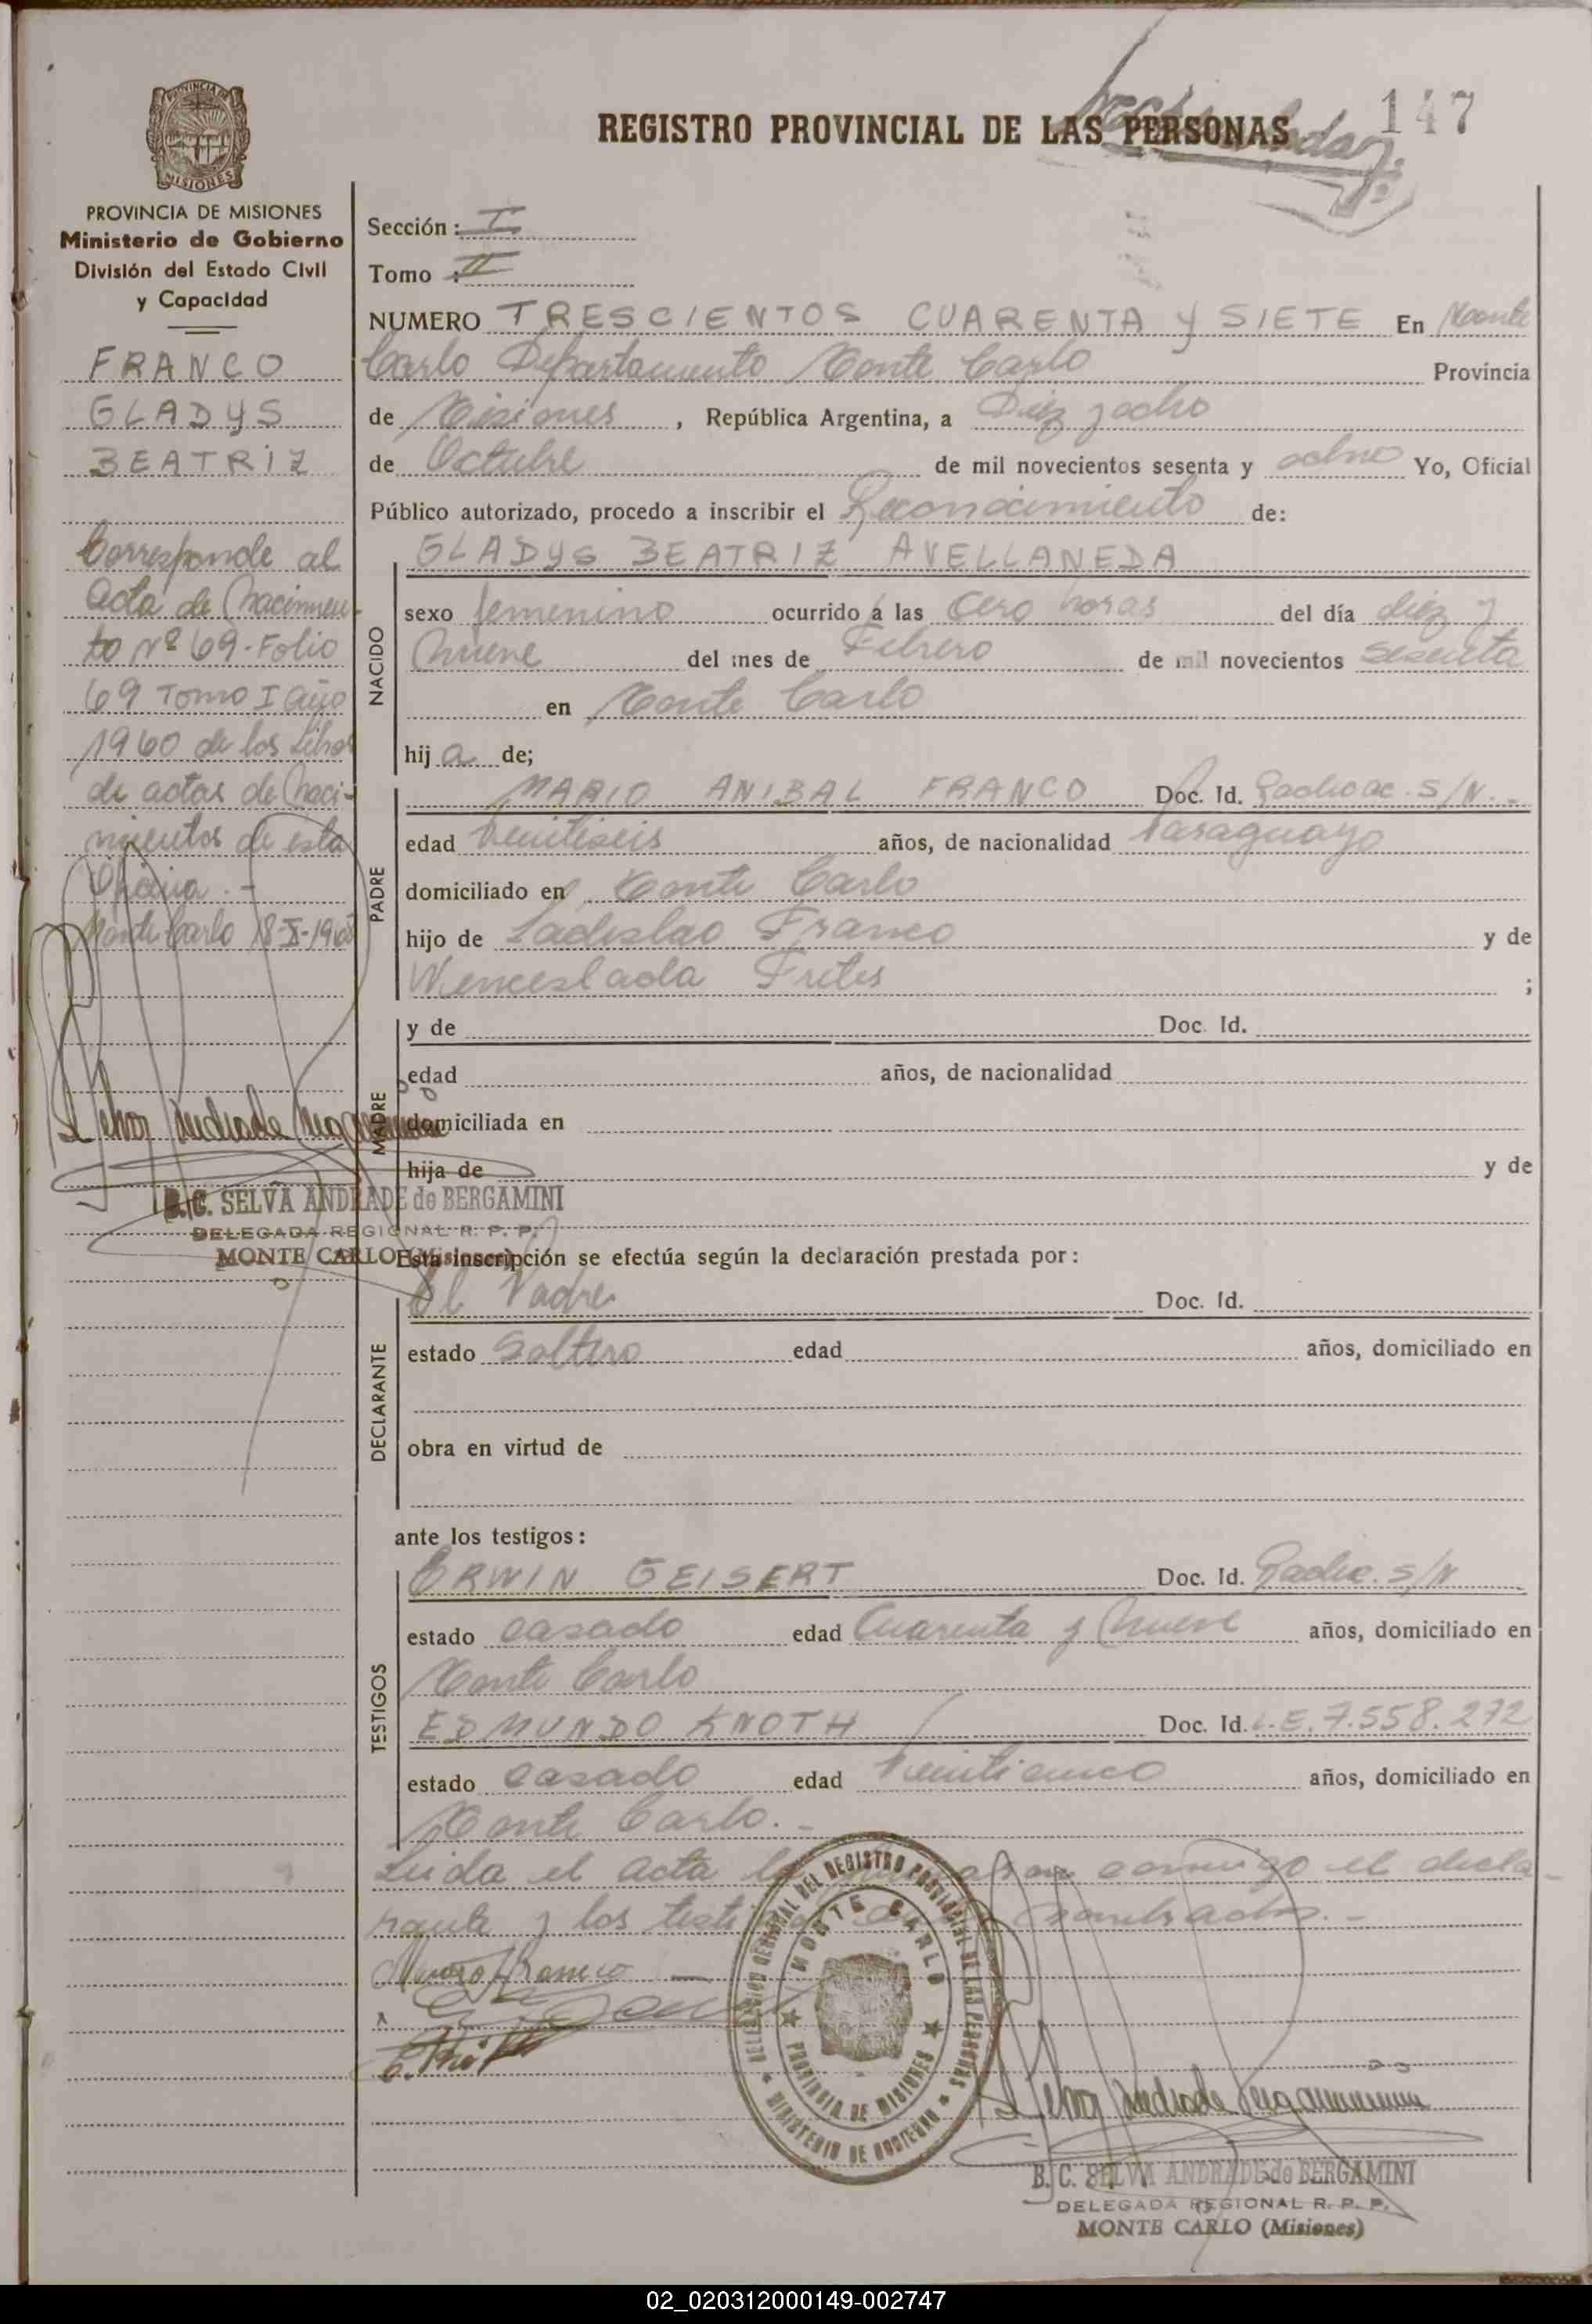 147
REGISTRO PROVINCIAL DE LAS PERSONAS
PROVINCIA DE MISIONES
Ministerio de Gobierno
División del Estado Civil
y Capacidad
FRANCO
GLADYS
BEATRIZ
Corresponde al
Acta de Nacimien-
to Nº 69-Folio
69 Tomo I año
1960 de los Libros
de actas de Naci-
mientos de esta
Oficina.-
Monte Carlo 18-X-196
B.C. SELVA ANDRADE de BERGAMINI
DELEGADA REGIONAL R. P. P.
MONTE CARLO (Misiones)
Sección: I
Tomo: II
NUMERO TRESCIENTOS CUARENTA Y SIETE En Monte
Carlo Departamento Monte Carlo Provincia
de Misiones, República Argentina, a Diez y ocho
de Octubre de mil novecientos sesenta y ocho Yo, Oficial
Público autorizado, procedo a inscribir el Reconocimiento de:
NACIDO
GLADYS BEATRIZ AVELLANEDA
sexo femenino ocurrido a las Cero horas del día diez y
Nueve del mes de Febrero de mil novecientos sesenta
en Monte Carlo
hija de;
PADRE
MARIO ANIBAL FRANCO Doc. Id. S/N.-
edad Veintiseis años, de nacionalidad Paraguayo
domiciliado en Monte Carlo
hijo de Ladislao Franco y de
Wenceslada Fretes ;
MADRE
y de Doc. Id.
edad años, de nacionalidad
domiciliada en
hija de y de
Esta inscripción se efectúa según la declaración prestada por:
DECLARANTE
El Padre Doc. Id.
estado Soltero edad años, domiciliado en
obra en virtud de
ante los testigos:
TESTIGOS
ERWIN GEISERT Doc. Id. S/N
estado casado edad Cuarenta y Nueve años, domiciliado en
Monte Carlo
EDMUNDO KNOTH Doc. Id. L.E. 7.558.272
estado casado edad Veinticinco años, domiciliado en
Monte Carlo.-
Leida el acta conmigo el decla-
rante y los nombrados.-
DELEGACION REGIONAL DEL REGISTRO PROVINCIAL DE LAS PERSONAS
MONTE CARLO
PROVINCIA DE MISIONES
MINISTERIO DE GOBIERNO
B.C. SELVA ANDRADE de BERGAMINI
DELEGADA REGIONAL R. P. P.
MONTE CARLO (Misiones)
02_020312000149-002747